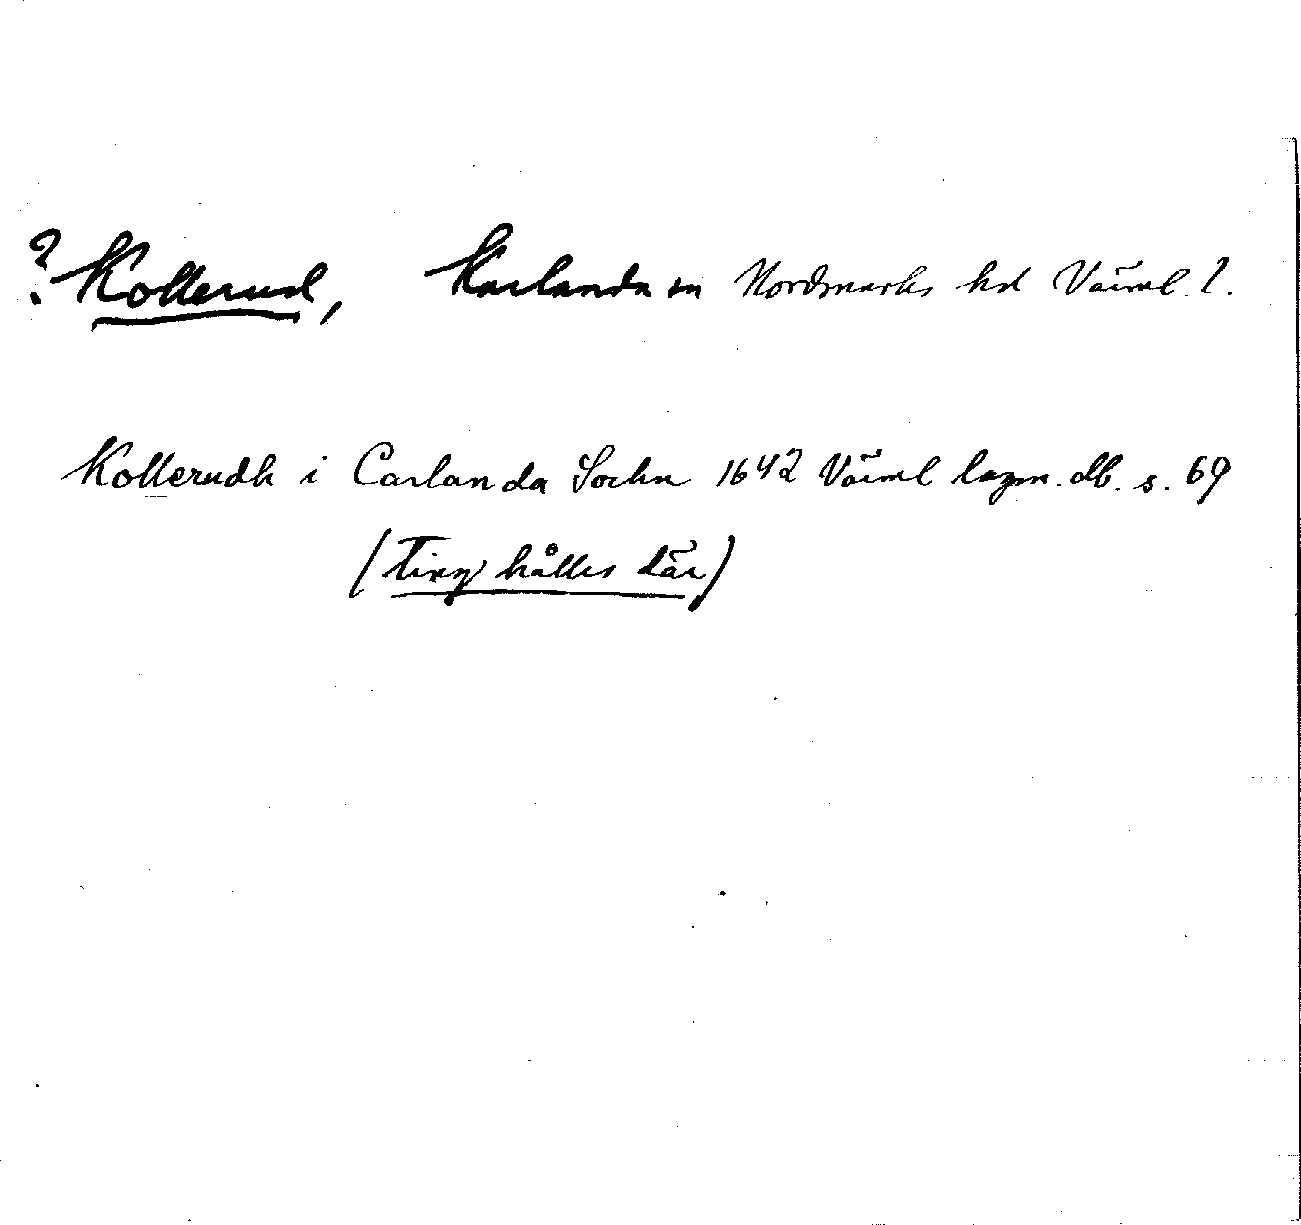 ? Kollerud, Karlanda sn Nordmarks hd Värml. ?.
Kollerudh i Carlanda Sochn 1642 Värml lagm. db. s. 69
(Ting hålles där)